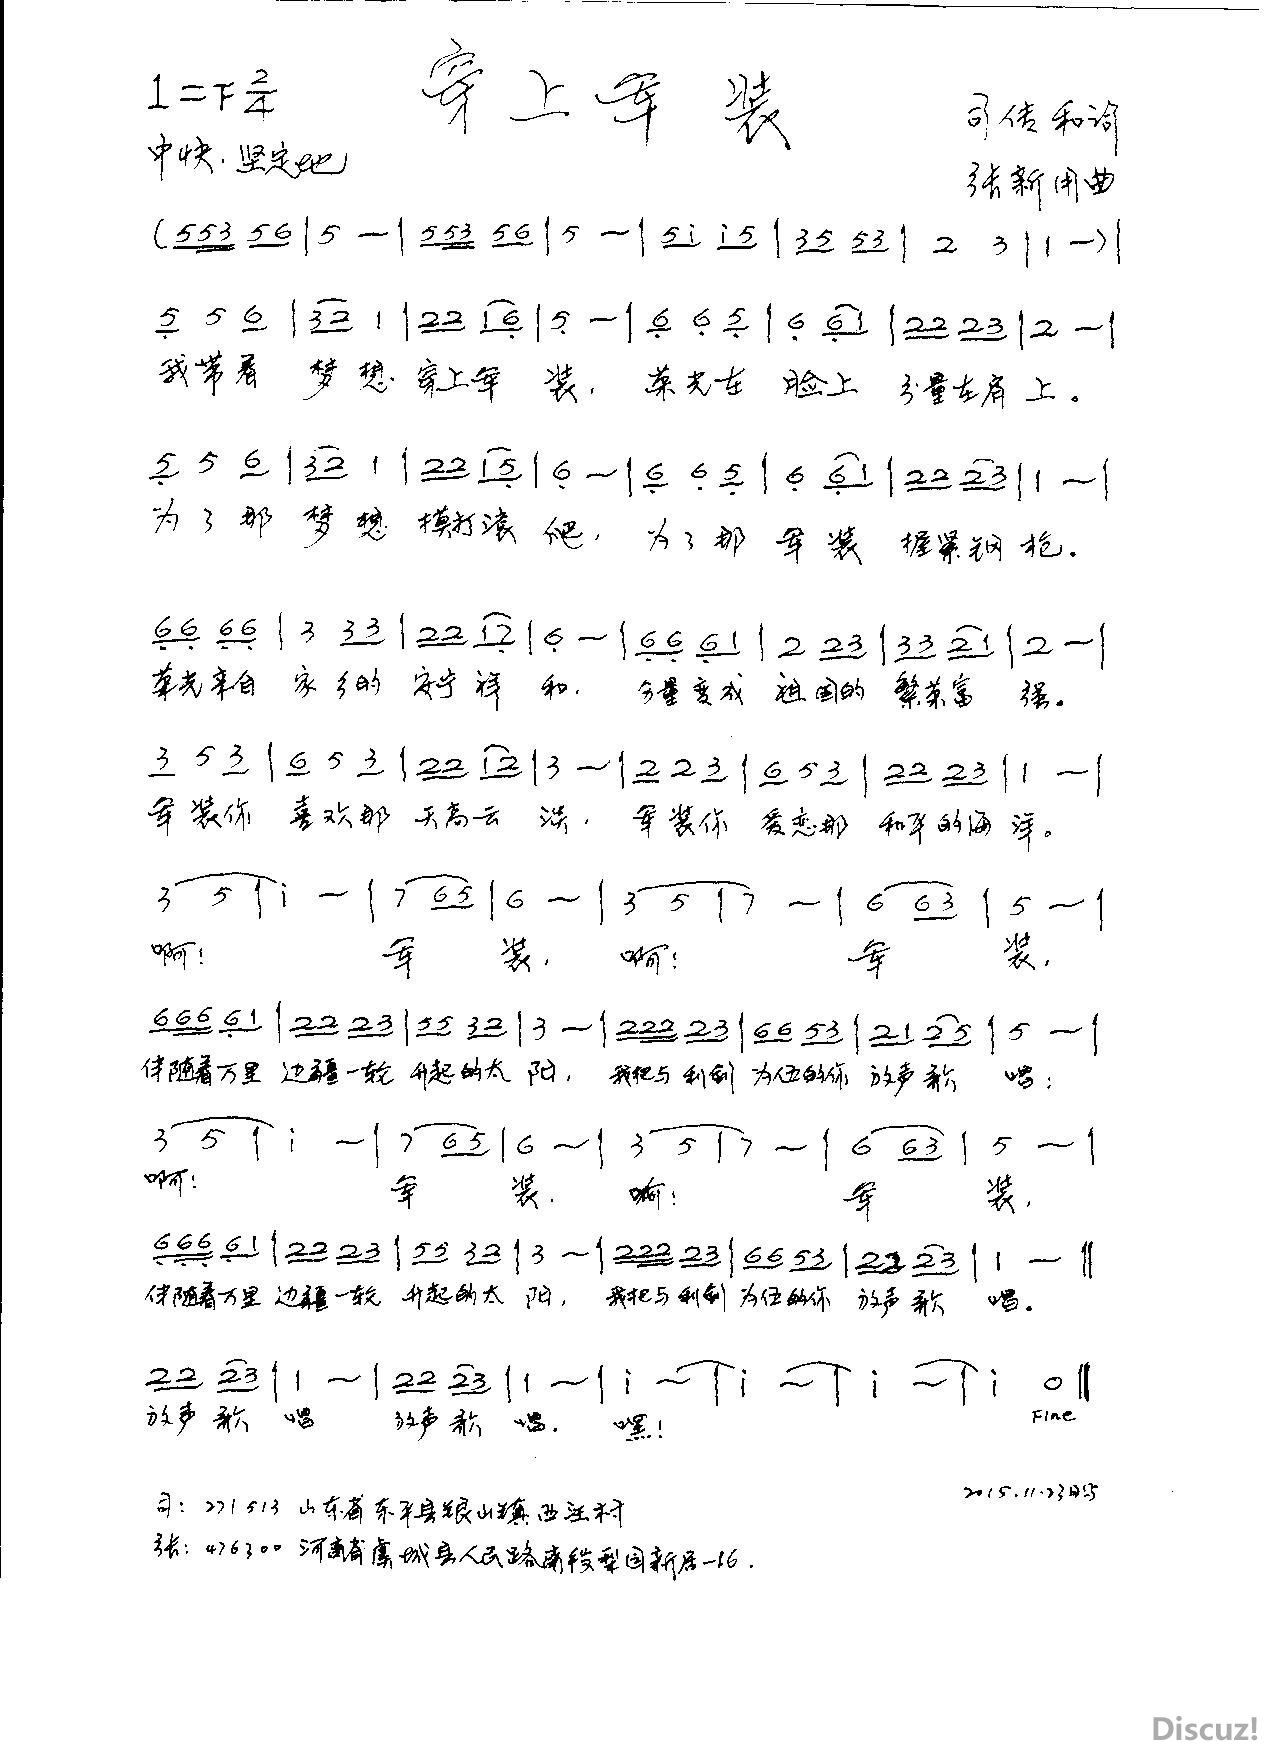 穿上军装
1=F 2/4
中快.坚定地
司传和词
张新国曲
(553 56|5 —|553 56|5 —|5i i5|35 53|2 3|1 —)|
5 5 6|32 1|22 16|5 —|6 6 5|6 61|22 23|2 —|
我带着 梦想 穿上军 装, 荣光在 脸上 分量在肩上。
5 5 6|32 1|22 15|6 —|6 6 5|6 61|22 23|1 —|
为了那 梦想 摸打滚 爬, 为了那 军装 握紧钢枪。
66 66|3 33|22 12|6 —|66 61|2 23|33 21|2 —|
荣光来自 家乡的 安宁祥 和, 分量变成 祖国的 繁荣富 强。
3 5 3|6 5 3|22 12|3 —|2 2 3|6 5 3|22 23|1 —|
军装你 喜欢那 天高云 淡, 军装你 爱恋那 和平的海 洋。
3 5|i —|7 65|6 —|3 5|7 —|6 63|5 —|
啊! 军 装, 啊! 军 装,
666 61|22 23|55 32|3 —|222 23|66 53|21 25|5 —|
伴随着万里 边疆一轮 升起的太 阳, 我把与利剑 为伍的你 放声歌 唱;
3 5|i —|7 65|6 —|3 5|7 —|6 63|5 —|
啊! 军 装, 啊! 军 装,
666 61|22 23|55 32|3 —|222 23|66 53|22 23|1 —‖
伴随着万里 边疆一轮 升起的太 阳, 我把与利剑 为伍的你 放声歌 唱。
22 23|1 —|22 23|1 —|i —|i —|i —|i 0‖
放声歌 唱 放声歌 唱. 嘿! Fine
2015.11.23日
司: 271513 山东省东平县银山镇西汪村
张: 476300 河南省虞城县人民路南段梨园新居-16.
Discuz!